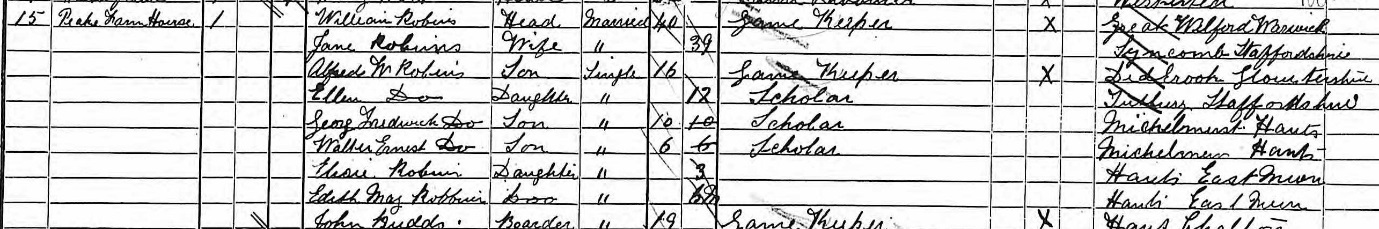 15 Peake Farm House 1 William Robins Head Married 40 Game Keeper X Great Wilford Warwick
Jane Robins Wife " 39 Lyncomb Staffordshire
Alfred W Robins Son Single 16 Game Keeper X Didbrook Gloustershire
Ellen Do Daughter " 12 Scholar Tutbury Staffordshire
Georg Fredrick Do Son " 10 10 Scholar Michelmerst Hants
Walter Ernest Do Son " 6 6 Scholar Michelmers Hants
Elsie Robins Daughter " 3 Hants East Meon
Edith May Robbins Doo " Hants East Meon
John Budds Boarder " 19 Game Keeper X Hants